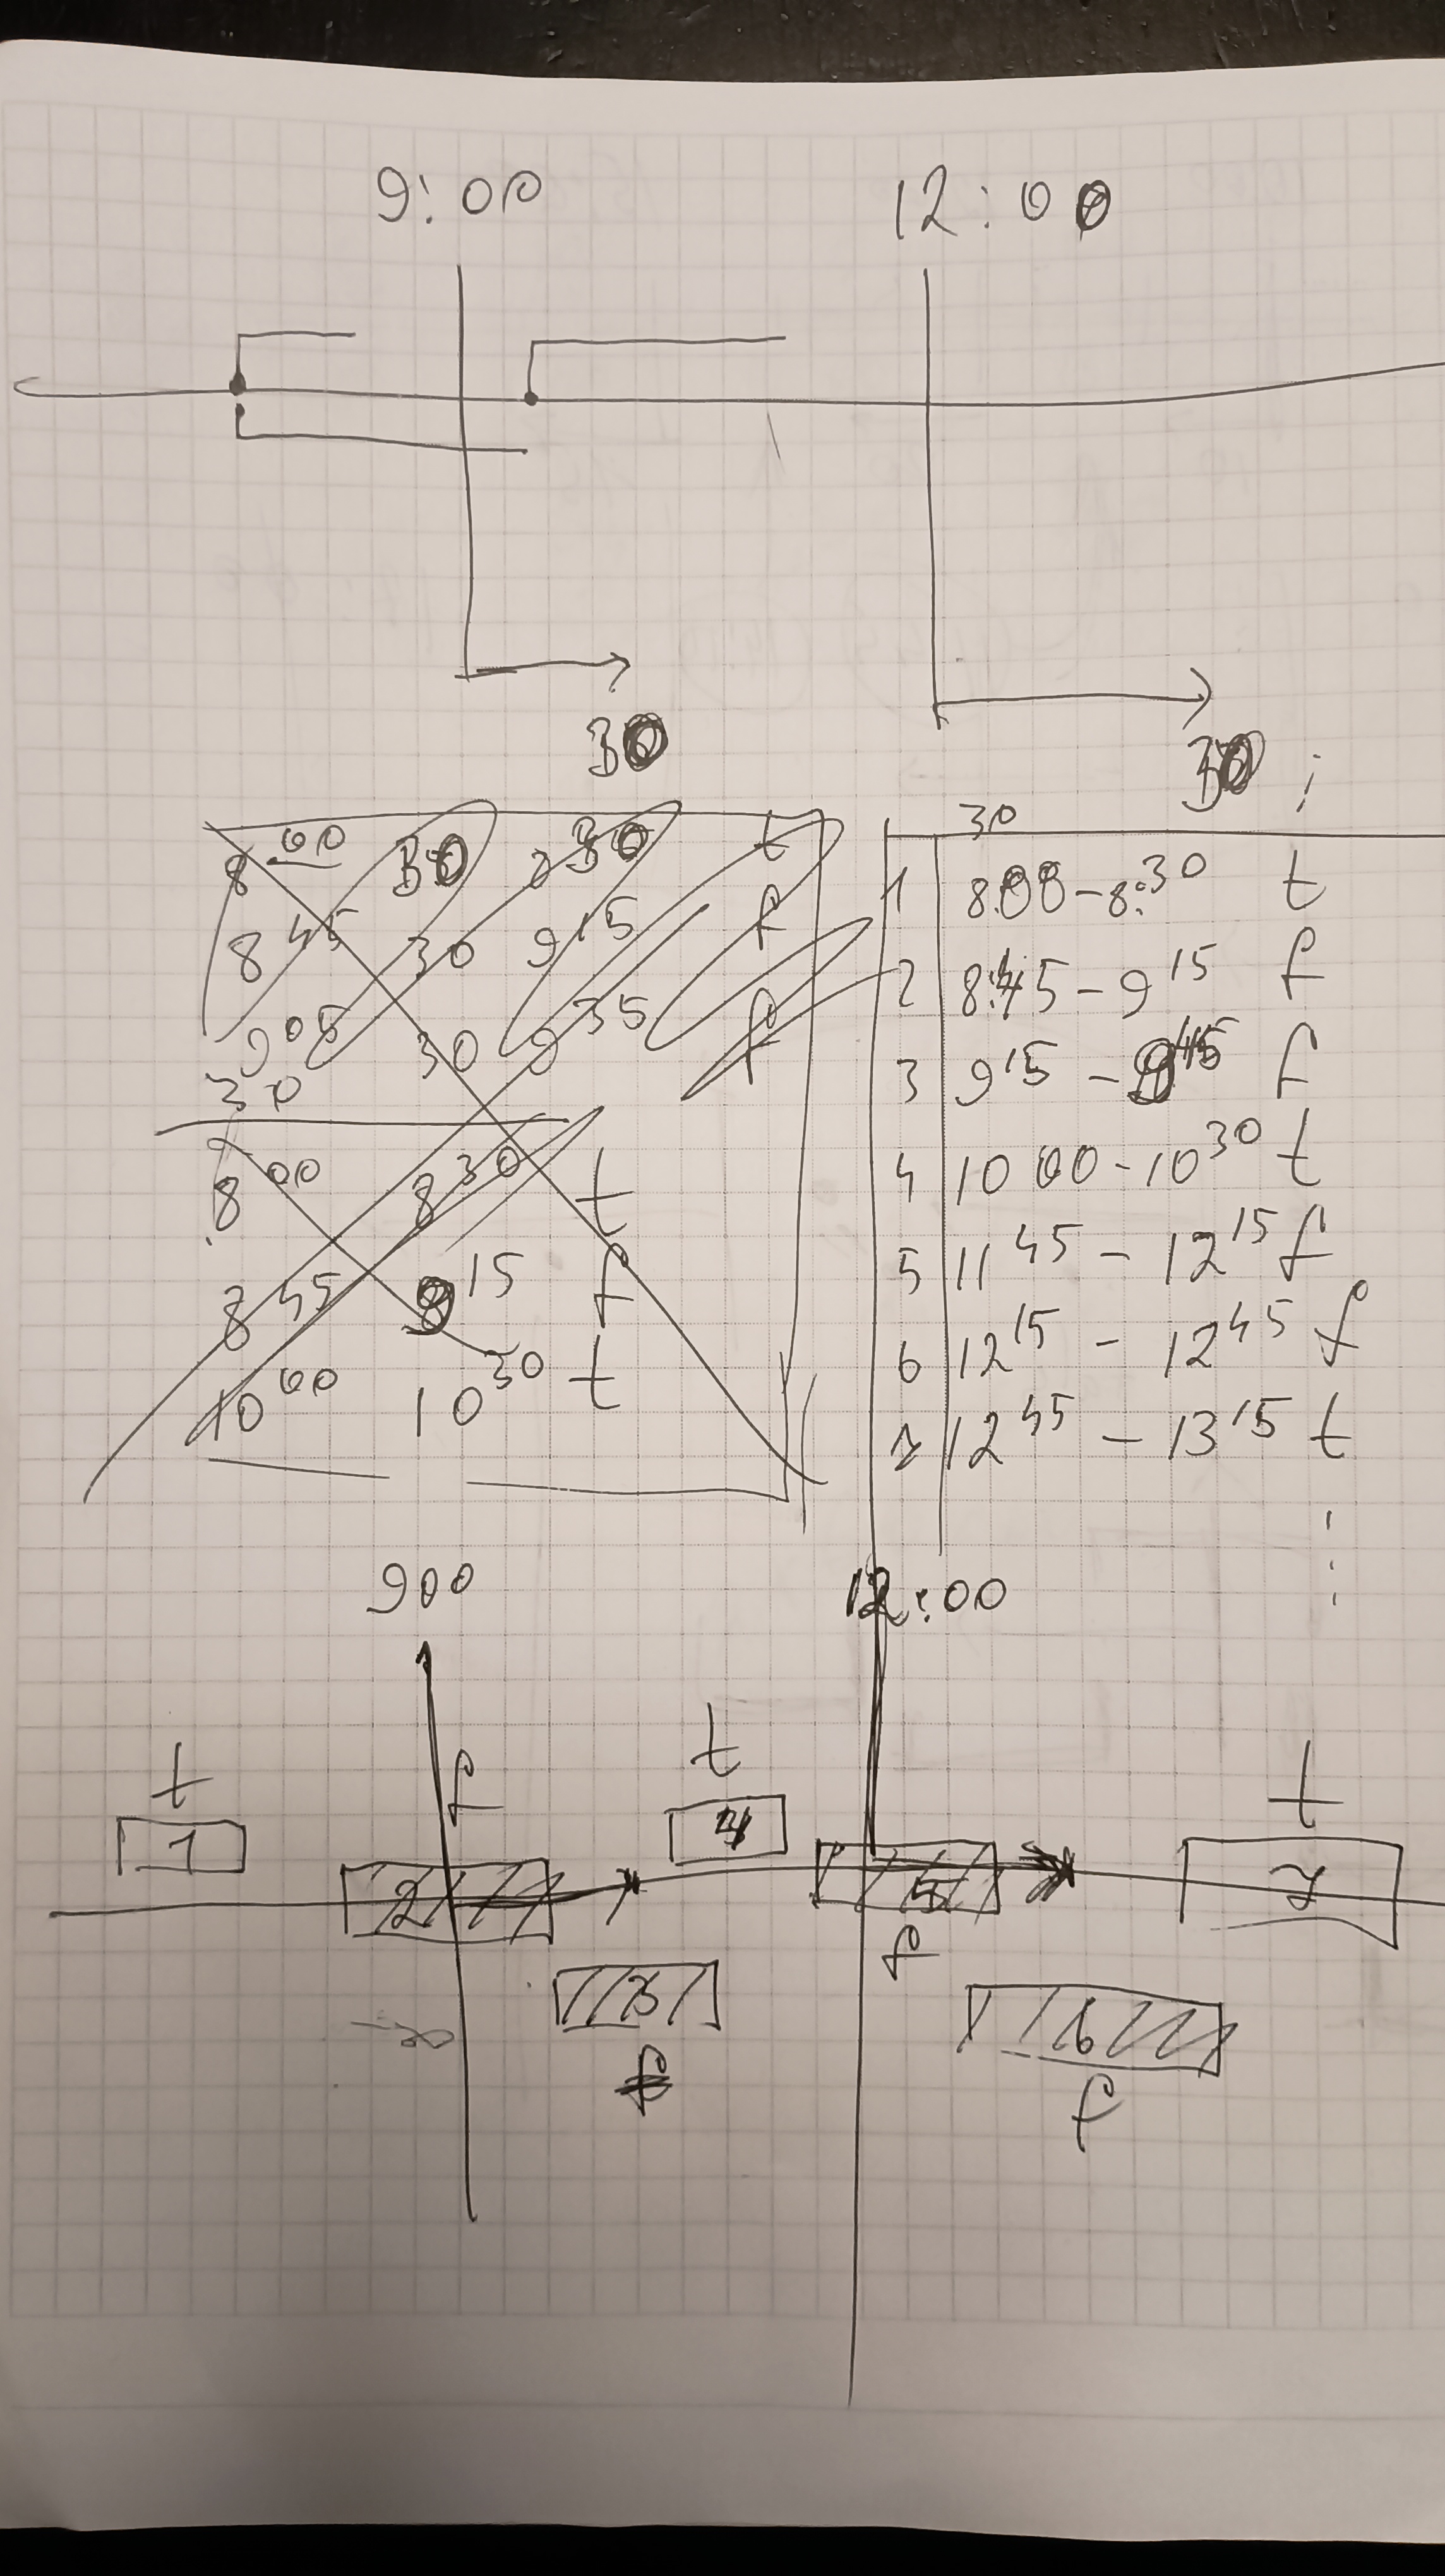 9:00 12:00
30 30 ;
8 00 30 8 30 t
8 45 30 9 15 f
9 05 30 9 35 f
30
8 00 8 30 t
8 45 9 15 f
10 00 10 30 t
30
1 8:00 - 8:30 t
2 8:45 - 9 15 f
3 9 15 - 9 45 f
4 10 00 - 10 30 t
5 11 45 - 12 15 f
6 12 15 - 12 45 f
7 12 45 - 13 15 t
9 00 12:00
t f t t
1 2 4 5 7
f
3 6
f f